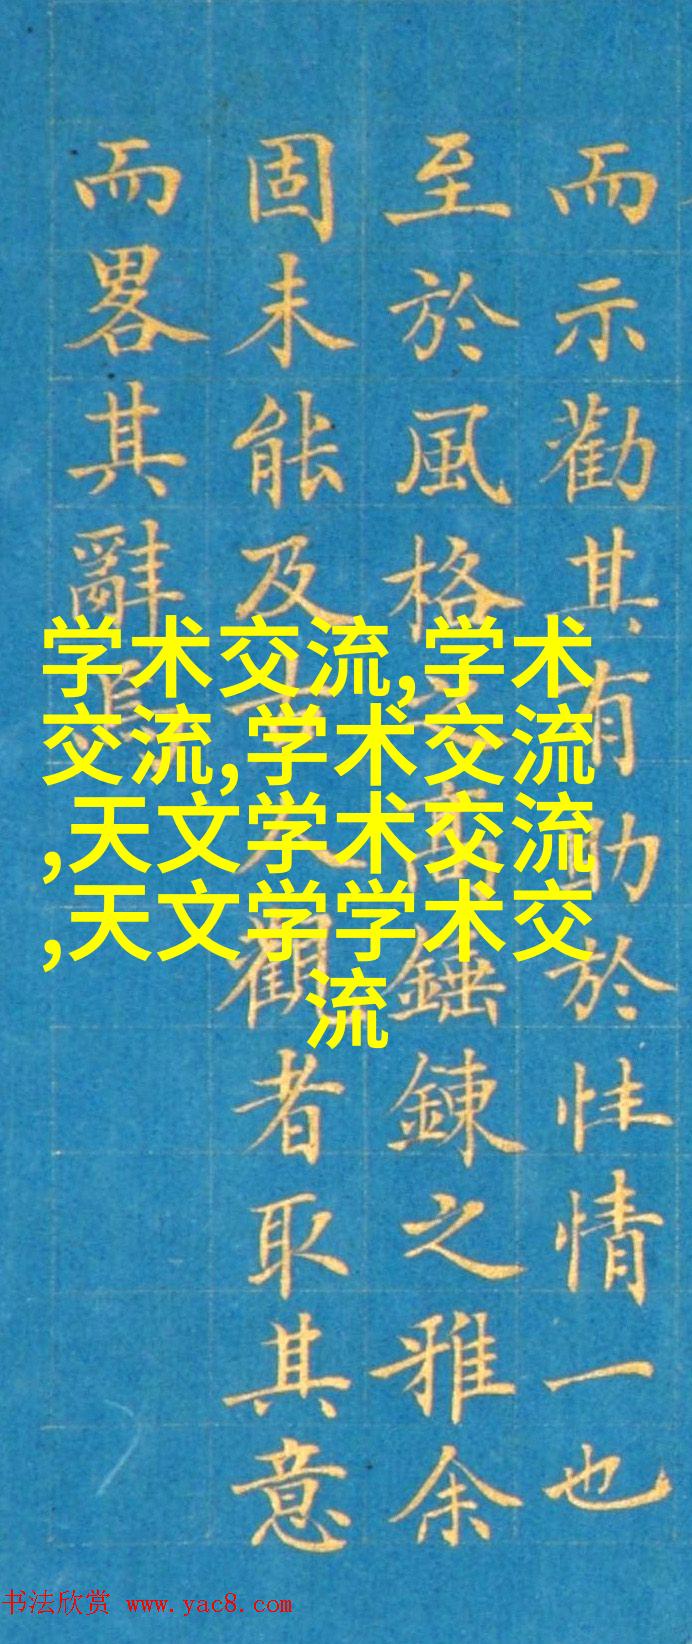 而示勸其有助於性情一也
至於風格之高錘鍊之雅余
固未能及人觀者取其意
而畧其辭焉
学术交流,学术
交流,学术交流
,天文学术交流
,天文学学术交
流
书法欣赏 www.yac8.com